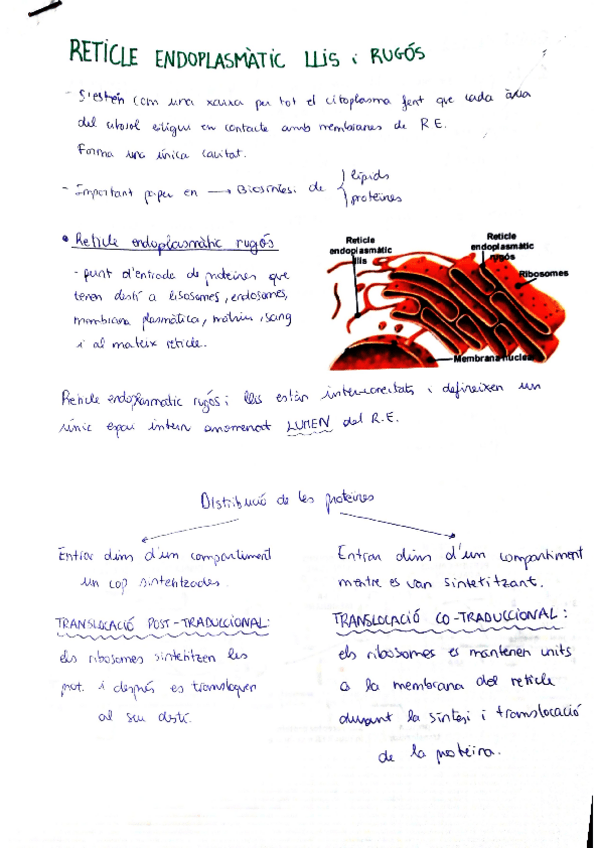 RETICLE ENDOPLASMÀTIC LLIS i RUGÓS
- S'estén com una xarxa per tot el citoplasma fent que cada àrea
del citosol estigui en contacte amb membranes de R E.
Forma una única cavitat.
- Important paper en → Biosíntesi de { lípids
proteïnes
• Reticle endoplasmàtic rugós
- punt d'entrada de proteïnes que
tenen destí a lisosomes, endosomes,
membrana plasmàtica, matriu, sang
i al mateix reticle.
Reticle
endoplasmàtic
llis
Reticle
endoplasmàtic
rugós
Ribosomes
Membrana nuclear
Reticle endoplasmatic rugós i llis estàn interconectats i defineixen un
únic espai intern anomenat LUMEN del R.E.
Distribució de les proteines
Entrar dins d'un compartiment
un cop sintetitzades.
TRANSLOCACIÓ POST-TRADUCCIONAL:
els ribosomes sintetitzen les
prot. i després es transloquen
al seu destí.
Entrar dins d'un compartiment
mentre es van sintetitzant.
TRANSLOCACIÓ CO-TRADUCCIONAL:
els ribosomes es mantenen units
a la membrana del reticle
durant la síntesi i translocació
de la proteïna.